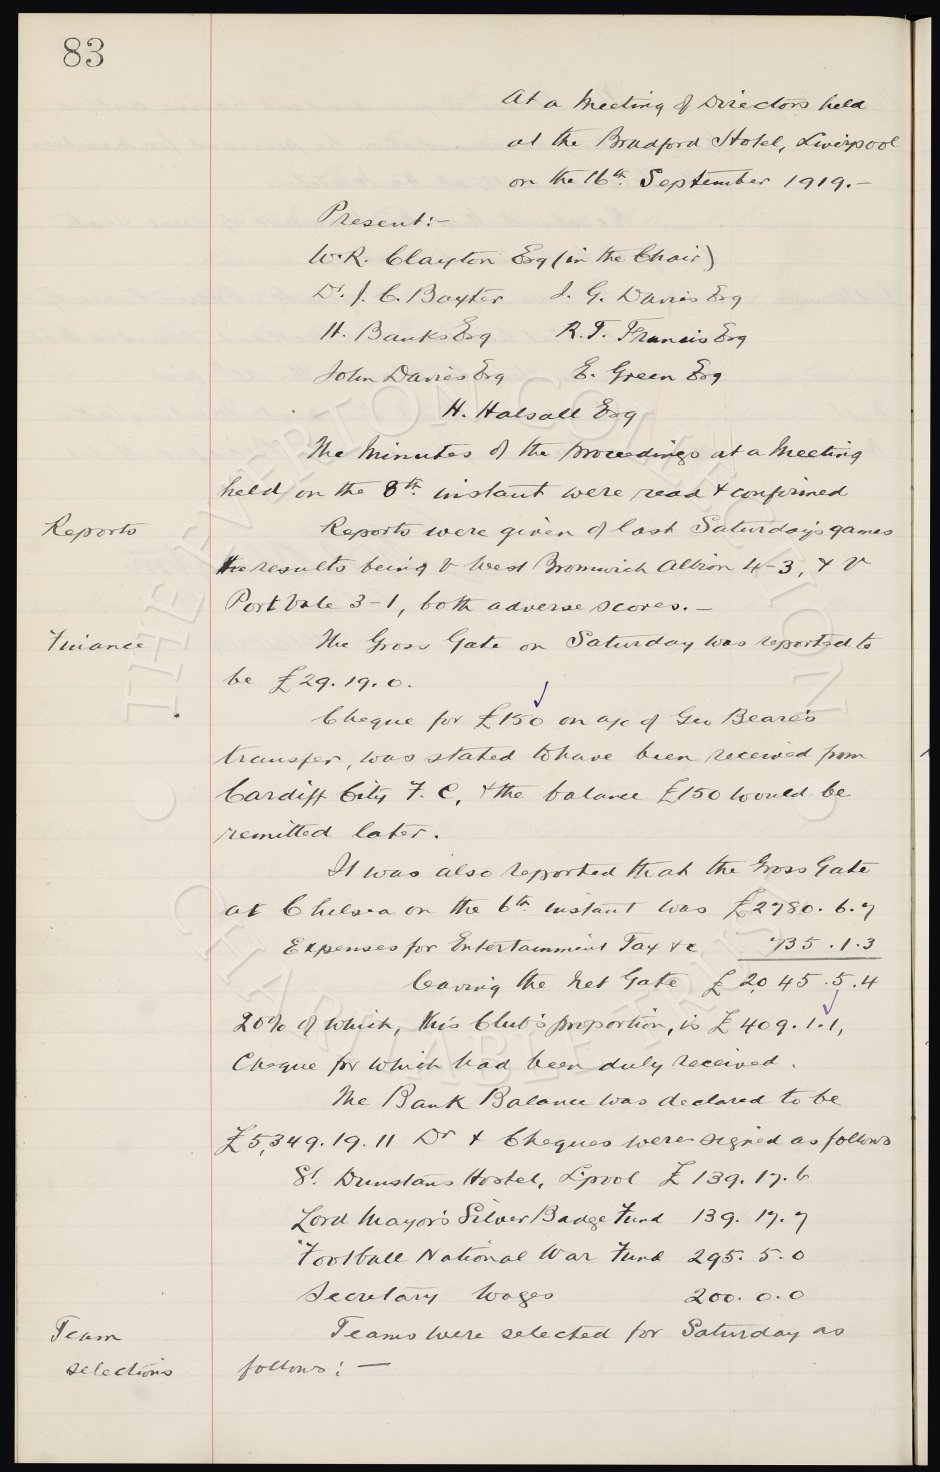 83
At a Meeting of Directors held
at the Bradford Hotel, Liverpool
on the 16th. September 1919.-
Present:-
W.R. Clayton Esq (in the Chair)
Dr. J. C. Baxter J. G. Davies Esq
H. Banks Esq R. T. Francis Esq
John Davies Esq E. Green Esq
H. Halsall Esq
The Minutes of the proceedings at a Meeting
held on the 8th. instant were read & confirmed
Reports Reports were given of last Saturday's games
the results being v West Bromwich Albion 4-3, & v
Port Vale 3-1, both adverse scores.-
Finance The Gross Gate on Saturday was reported to
be £29.19.0.
Cheque for £150 on a/c of Geo Beare's
transfer, was stated to have been received from
Cardiff City F.C, & the balance £150 would be
remitted later.
It was also reported that the Gross Gate
at Chelsea on the 6th instant was £2780.6.7
Expenses for Entertainment Tax &c 735.1.3
leaving the Net Gate £2,045.5.4
20% of which, this Club's proportion, is £409.1.1,
Cheque for which had been duly received.
The Bank Balance was declared to be
£5,349.19.11 Dr & Cheques were signed as follows
St. Dunstans Hostel, L'pool £139.17.6
Lord Mayor's Silver Badge Fund 139.17.7
Football National War Fund 295.5.0
Secretary Wages 200.0.0
Team Teams were selected for Saturday as
selections follows:-
THE EVERTON COLLECTION
CHARITABLE TRUST